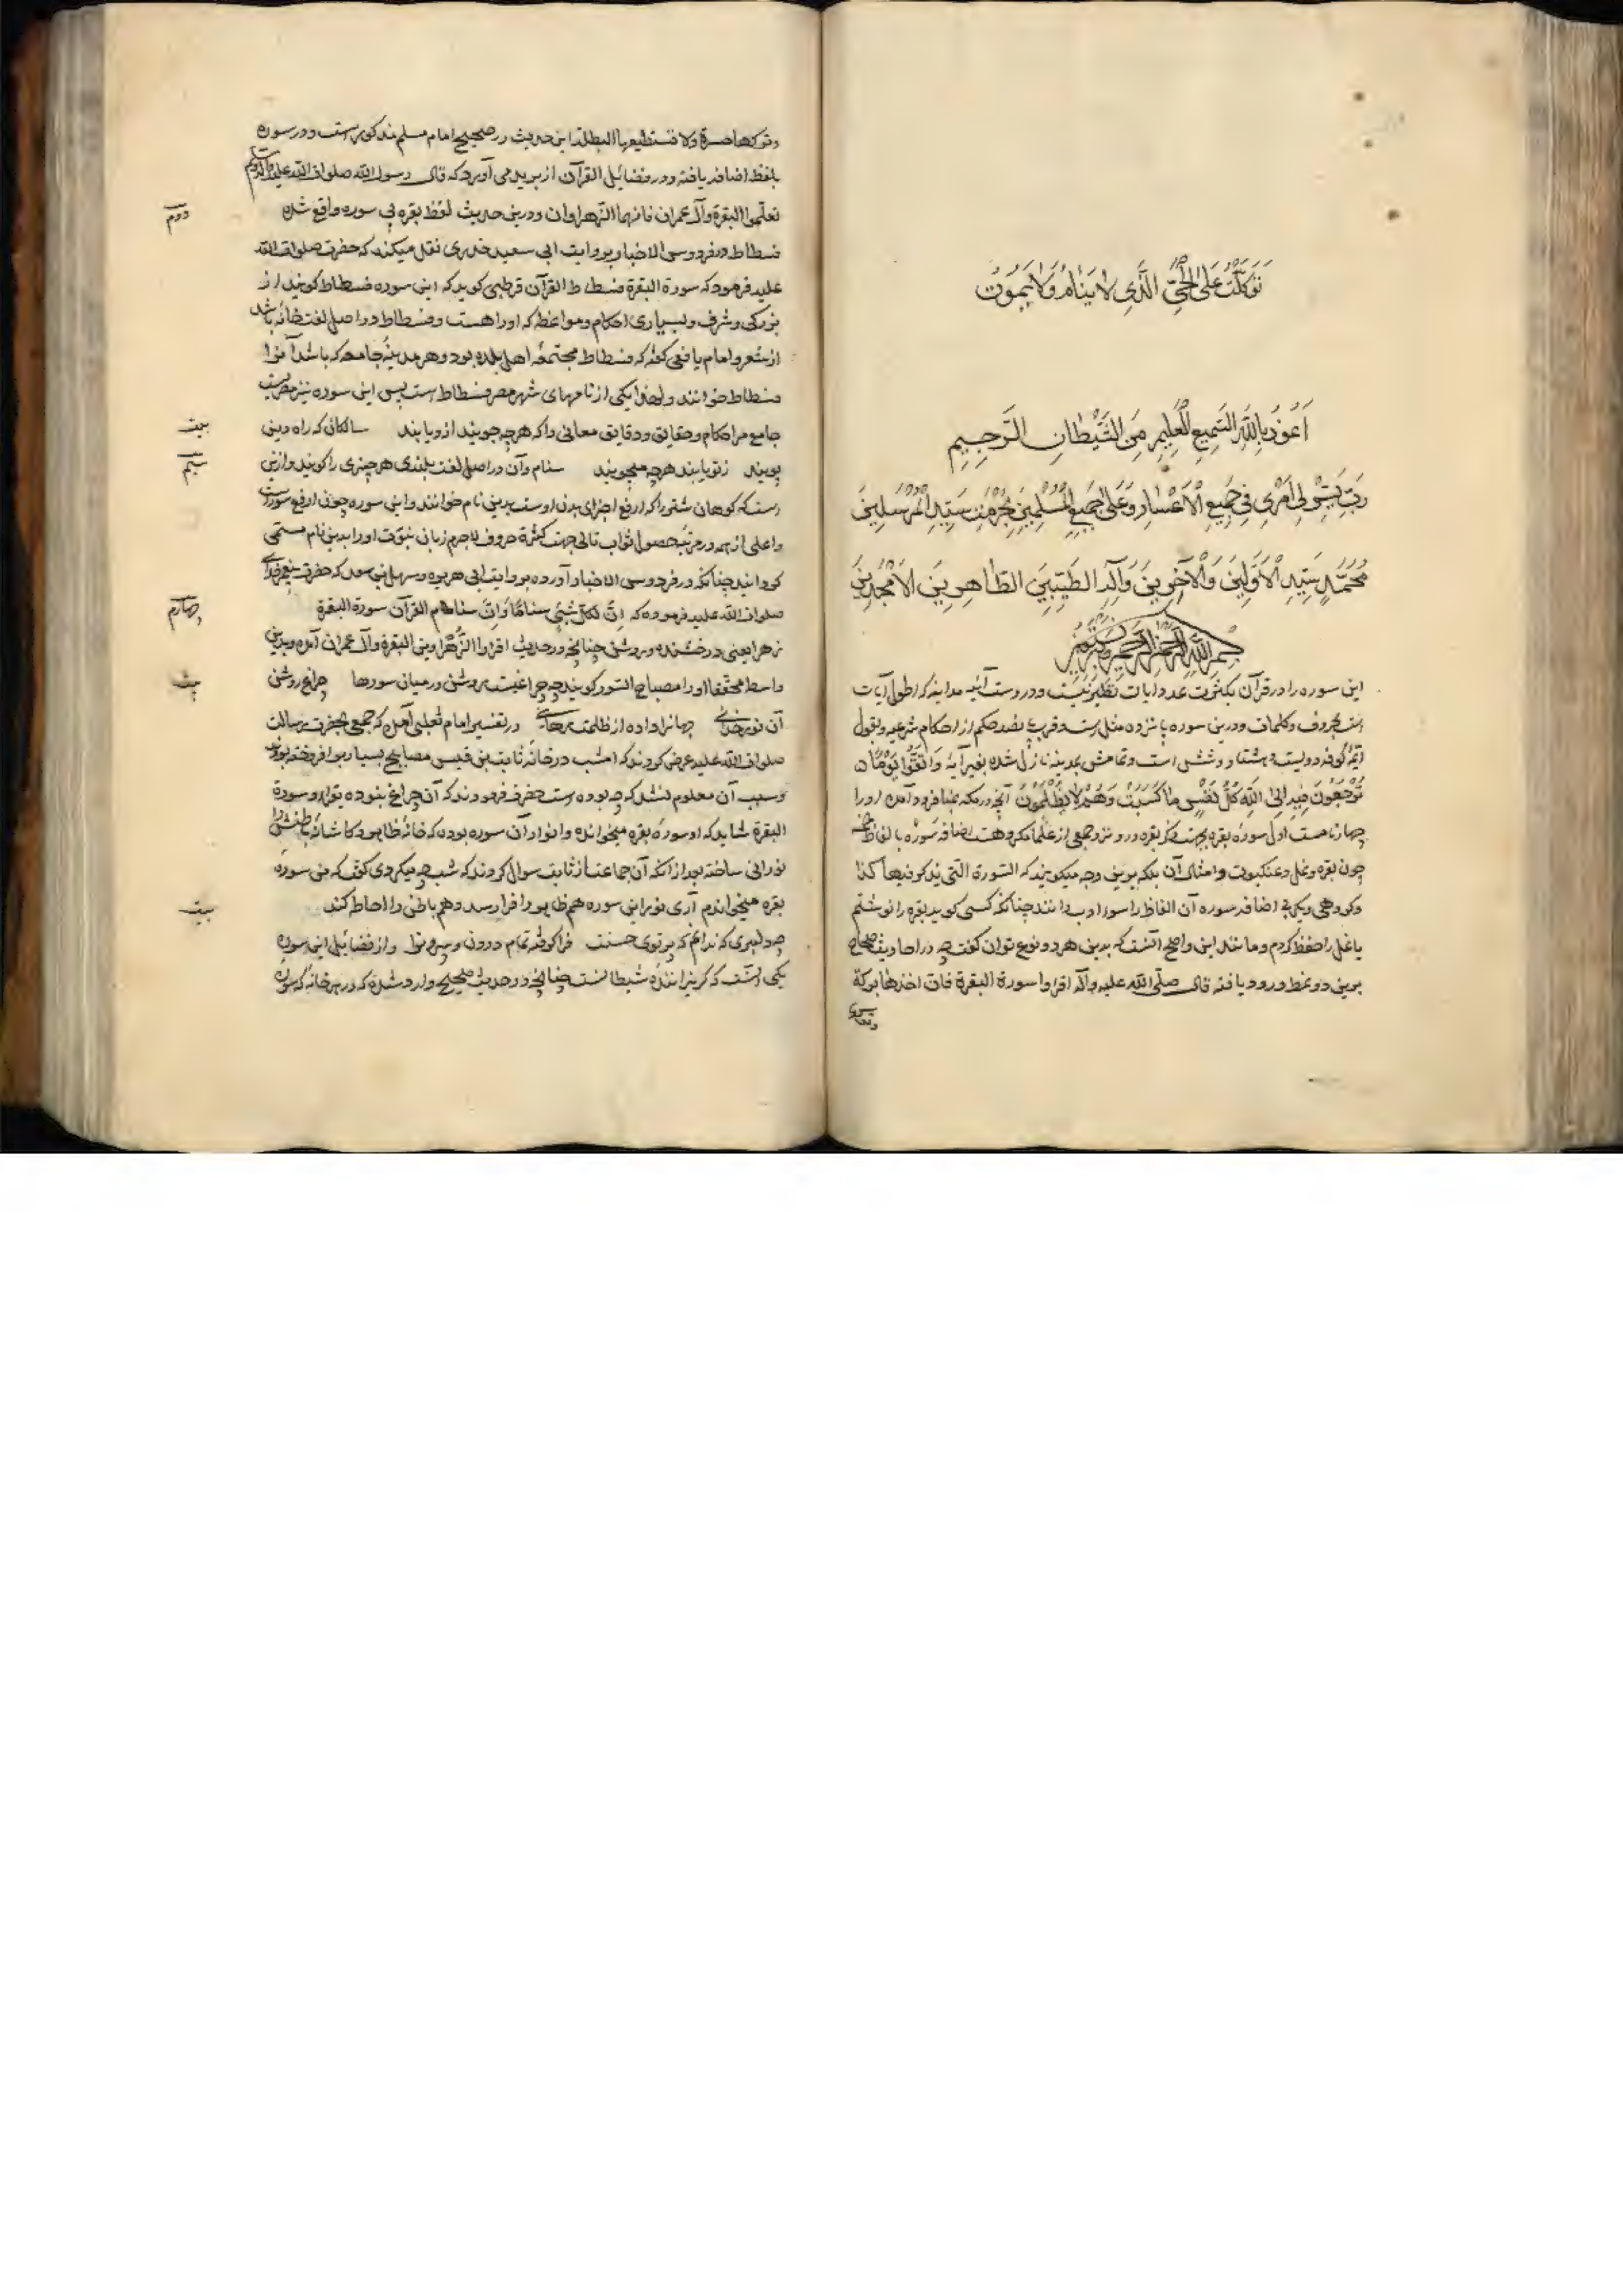 تَوَكَّلْتُ عَلَى الْحَيِّ الَّذِي لاٰ يَنَامُ وَلاٰ يَمُوتُ
اَعُوْذُ بِاللّٰهِ السَّمِيعِ الْعَلِيمِ مِنَ الشَّيْطَانِ الرَّجِيمِ
رَبِّ يَسِّرْ لِي اَمْرِي فِي جَمِيعِ الْاَعْسَارِ وَعَلَى جَمِيعِ الْمُسْلِمِينَ بِحُرْمَتِ سَيِّدِ الْمُرْسَلِينَ
مُحَمَّدٍ سَيِّدِ الْاَوَّلِينَ وَالْآخِرِينَ وَآلِهِ الطَّيِّبِينَ الطَّاهِرِينَ الْاَمْجَدِينَ
بِسْمِ اللّٰهِ الرَّحْمٰنِ الرَّحِيمِ
این سوره را در قرآن بکثرت عدد ایات نظیر نیست و دروست آئیه مداینه که اطول آیات
است بحروف و کلمات و درین سوره پانزده مثل است و قریب پانصد حکم از احکام شرعیه و بقول
ائمّهٔ کوفه دویست و هشتاد و شش است و تمامش بمدینه نازل شده بغیر آیهٔ وَاتَّقُوا يَوْمًا
تُرْجَعُونَ فِيهِ اِلَى اللّٰهِ كُلُّ نَفْسٍ مَا كَسَبَتْ وَهُمْ لاٰ يُظْلَمُونَ آنچه در مکه بمنا فرود آمده او را
چهار نامست اول سورهٔ بقره بجهت ذکر بقره درو و نزد جمعی از علما مکروهست اضافه سوره بالفاظ
چون بقره و نمل و عنکبوت و امثال آن بلکه برین وجه میکویند که السّورة الّتی یذکر فیها کذا
وکروهی دیکر بی اضافه سوره آن الفاظ را سوء ادب دانند چنانکه کسی کوید بقره را نوشتم
یا نمل را حفظ کردم و مانند این واصح آنست که بدین هر دو نوع توان کفت چه در احادیث صحاح
برین دو نمط ورود یافته قال صلّی اللّه علیه وآله اقروا سورة البقرة فان اخذها برکة
وترکها حسرة ولا تستطیعها البطلة این حدیث در صحیح امام مسلم مذکورست و در سوره
بلفظ اضافه یافته و در فضایل القرآن از بریده می آورد که قال رسول اللّه صلوات اللّه علیه وآله
تعلّموا البقرة وآل عمران فانهما الزّهراوان و درین حدیث لفظ بقره بی سوره واقع شده
دوم
فسطاط در فردوس الاخبار بروایت ابی سعید خدری نقل میکند که حضرت صلوات اللّه
علیه فرمود که سورة البقرة فسطاط القرآن قرطبی کوید که این سوره فسطاط کویند از
بزرکی و شرف و بسیاری احکام و مواعظ که اورا هست و فسطاط در اصل لغت خانه باشد
از شعر و امام یافعی کفته که فسطاط مجتمعهٔ اهل بلده بود و هر مدینهٔ جامعه که باشد آنرا
فسطاط خوانند و لهذا یکی از نامهای شهر مصر فسطاط است پس این سوره نیز
جامع مر احکام و حقایق و دقایق معانی را که هرچه جویند ازو یابند سالکان که راه دین
بیت
پویند زتو یابند هرچه میجویند سنام وآن در اصل لغت بلندی هر چیزی را کویند و ازین
سیم
است که کوهان شتر را که ارفع اجزای بدن اوست بدین نام خوانند و این سوره چون ارفع سورست
واعلی از همه در مرتبه حصول ثواب تالی جهت کثرة حروف لاجرم زبان نبوّت اورا بدین نام مسمّی
کردانید چنانکه در فردوس الاخبار آورده بروایت ابی هریره و سهل بن سعد که حضرت پیغمبر خدای
صلوات اللّه علیه فرموده که اِنَّ لِکُلِّ شَیْءٍ سنامًا وَاِنَّ سنام القرآن سورة البقرة
چهارم
زهرا یعنی درخشنده و روشن چنانچه در حدیث اقروا الزَّهراوین البقرة وآل عمران آمده و بدین
واسطه محققا اورا مصباح السّور کویند چه چراغیست روشن در میان سورها چراغ روشن
بیت
آن نور خدائی جهانرا داده از ظلمت رهائی در تفسیر امام ثعلبی آمده که جمعی بحضرت رسالت
صلوات اللّه علیه عرض کردند که امشب در خانهٔ ثابت بن قیس مصابیح بسیار برافروخته بودند
و سبب آن معلوم نشد که چه بوده است حضرت فرمودند که آن چراغ نبوده تواند و سورة
البقرة شاید که او سورهٔ بقره میخوانده و انوار آن سوره بوده که خانهٔ ظاهر و کاشانهٔ باطنش را
نورانی ساخته بعد از آنکه آن جماعت از ثابت سوال کردند که شب چه میکردی کفت که من سوره
بقره میخواندم آری نور این سوره هم ظاهر را فرا رسد و هم باطن را احاطه کند
بیت
چه دلبری که ندانم که پرتوی حسنت فرا کرفته تمام درون و بیرونرا و از فضایل این سوره
یکی آنست که کریزانندهٔ شیطانست چنانچه در حدیث صحیح وارد شده که در هر خانه که سوره